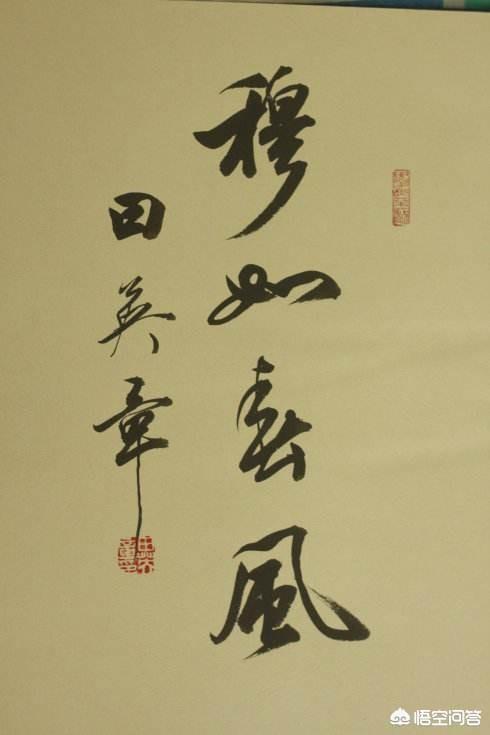 穆如春風
田英章
悟空问答